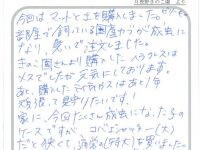 今回はマットと土を購入しました。
部屋で飼っている国産カブが成虫に
なり、急いで注文しました。
きのこ園さんより購入したヘラクレスは
メスでしたが元気にしております。
あと、購入した
頑張って見守りたいです。
家に、今回たくさん成虫になった子の
ケースですが、コバエシャッター(大)
だと狭くて、通常の(特大)を買いました。